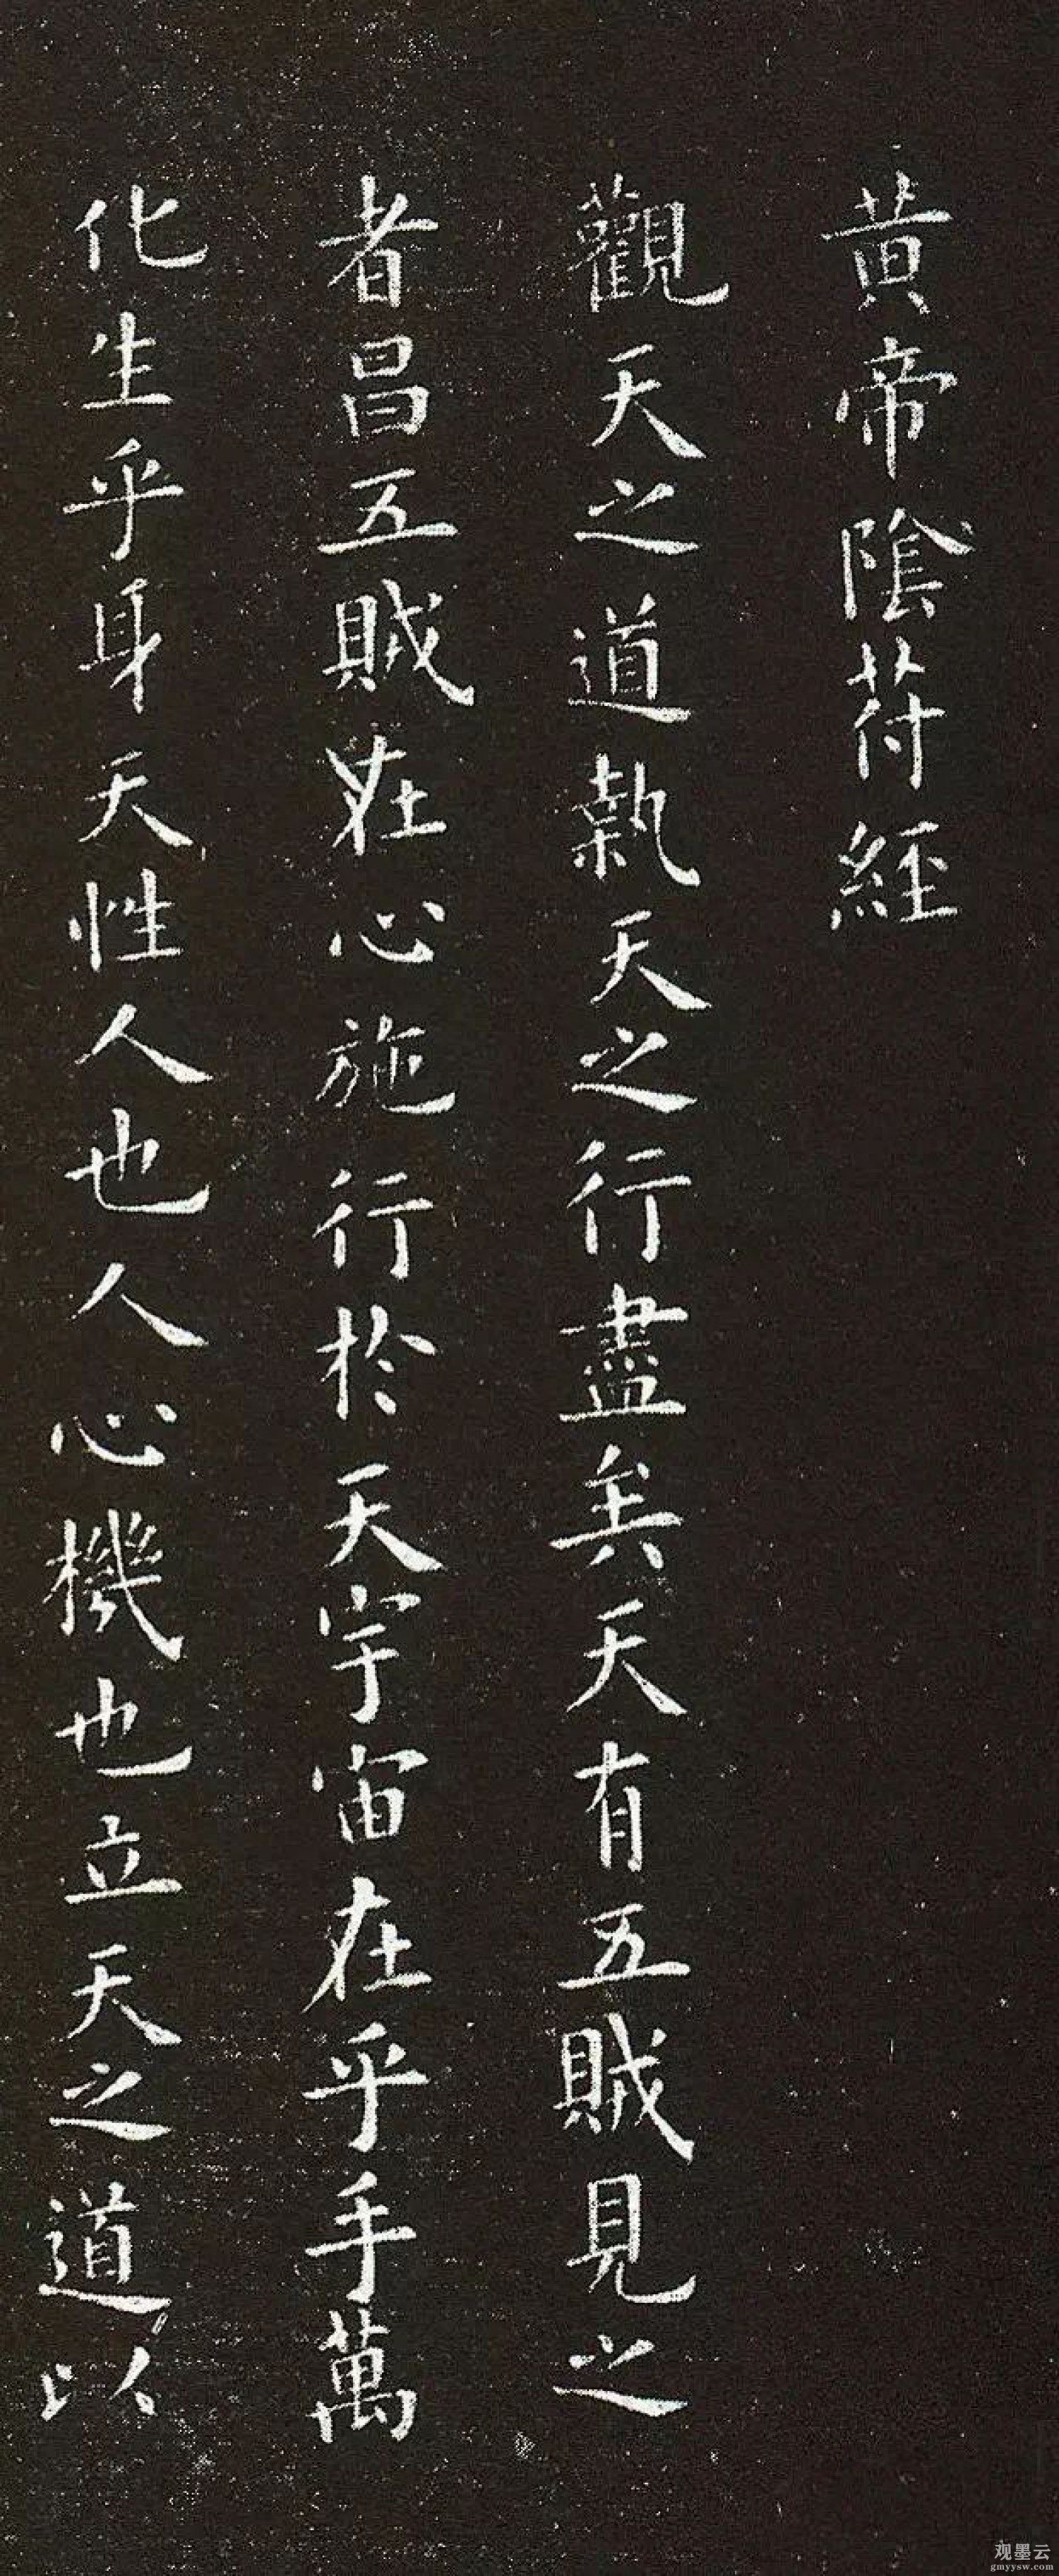 黄帝陰苻經
觀天之道執天之行盡矣天有五賊見之
者昌五賊在心施行於天宇宙在乎手萬
化生乎身天性人也人心機也立天之道以
观墨云
gmyysw.com